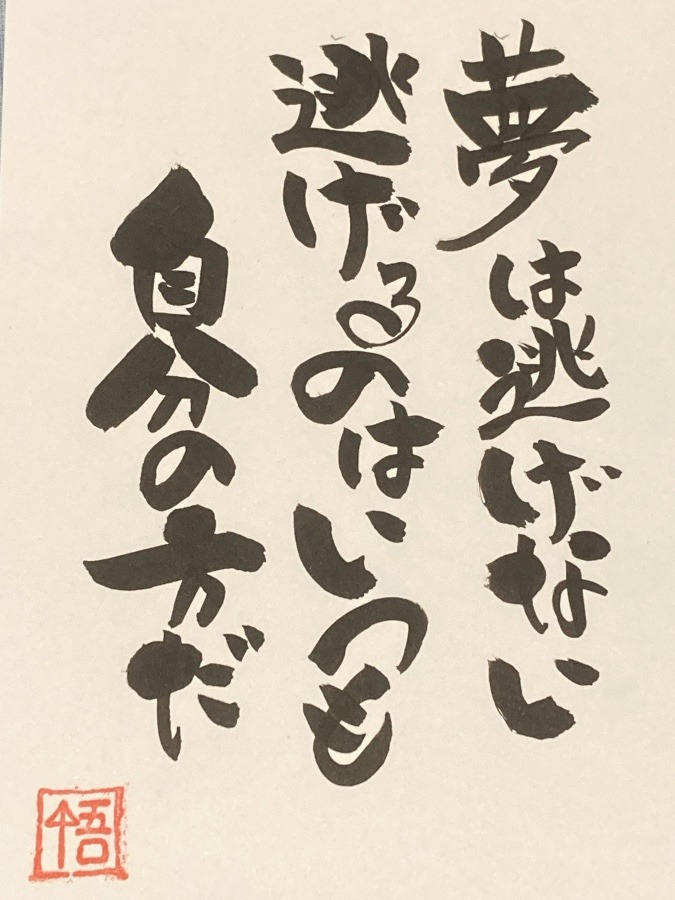 夢は逃げない
逃げるのはいつも
自分の方だ
悟